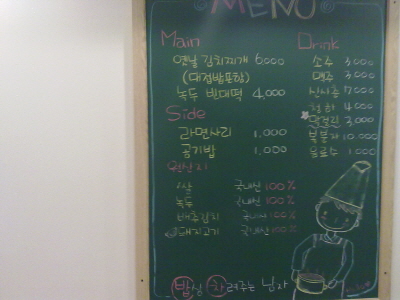 MENU
Main
옛날 김치찌개 6,000
(대접밥포함)
녹두 빈대떡 4,000
Side
라면사리 1,000
공기밥 1,000
원산지
쌀 국내산 100%
녹두 국내산 100%
배추김치 국내산 100%
돼지고기 국내산 100%
Drink
소주 3,000
맥주 3,000
산사춘 7,000
청하 4,000
막걸리 3,000
복분자 10,000
음료수 1,000
밥상 차려주는 남자